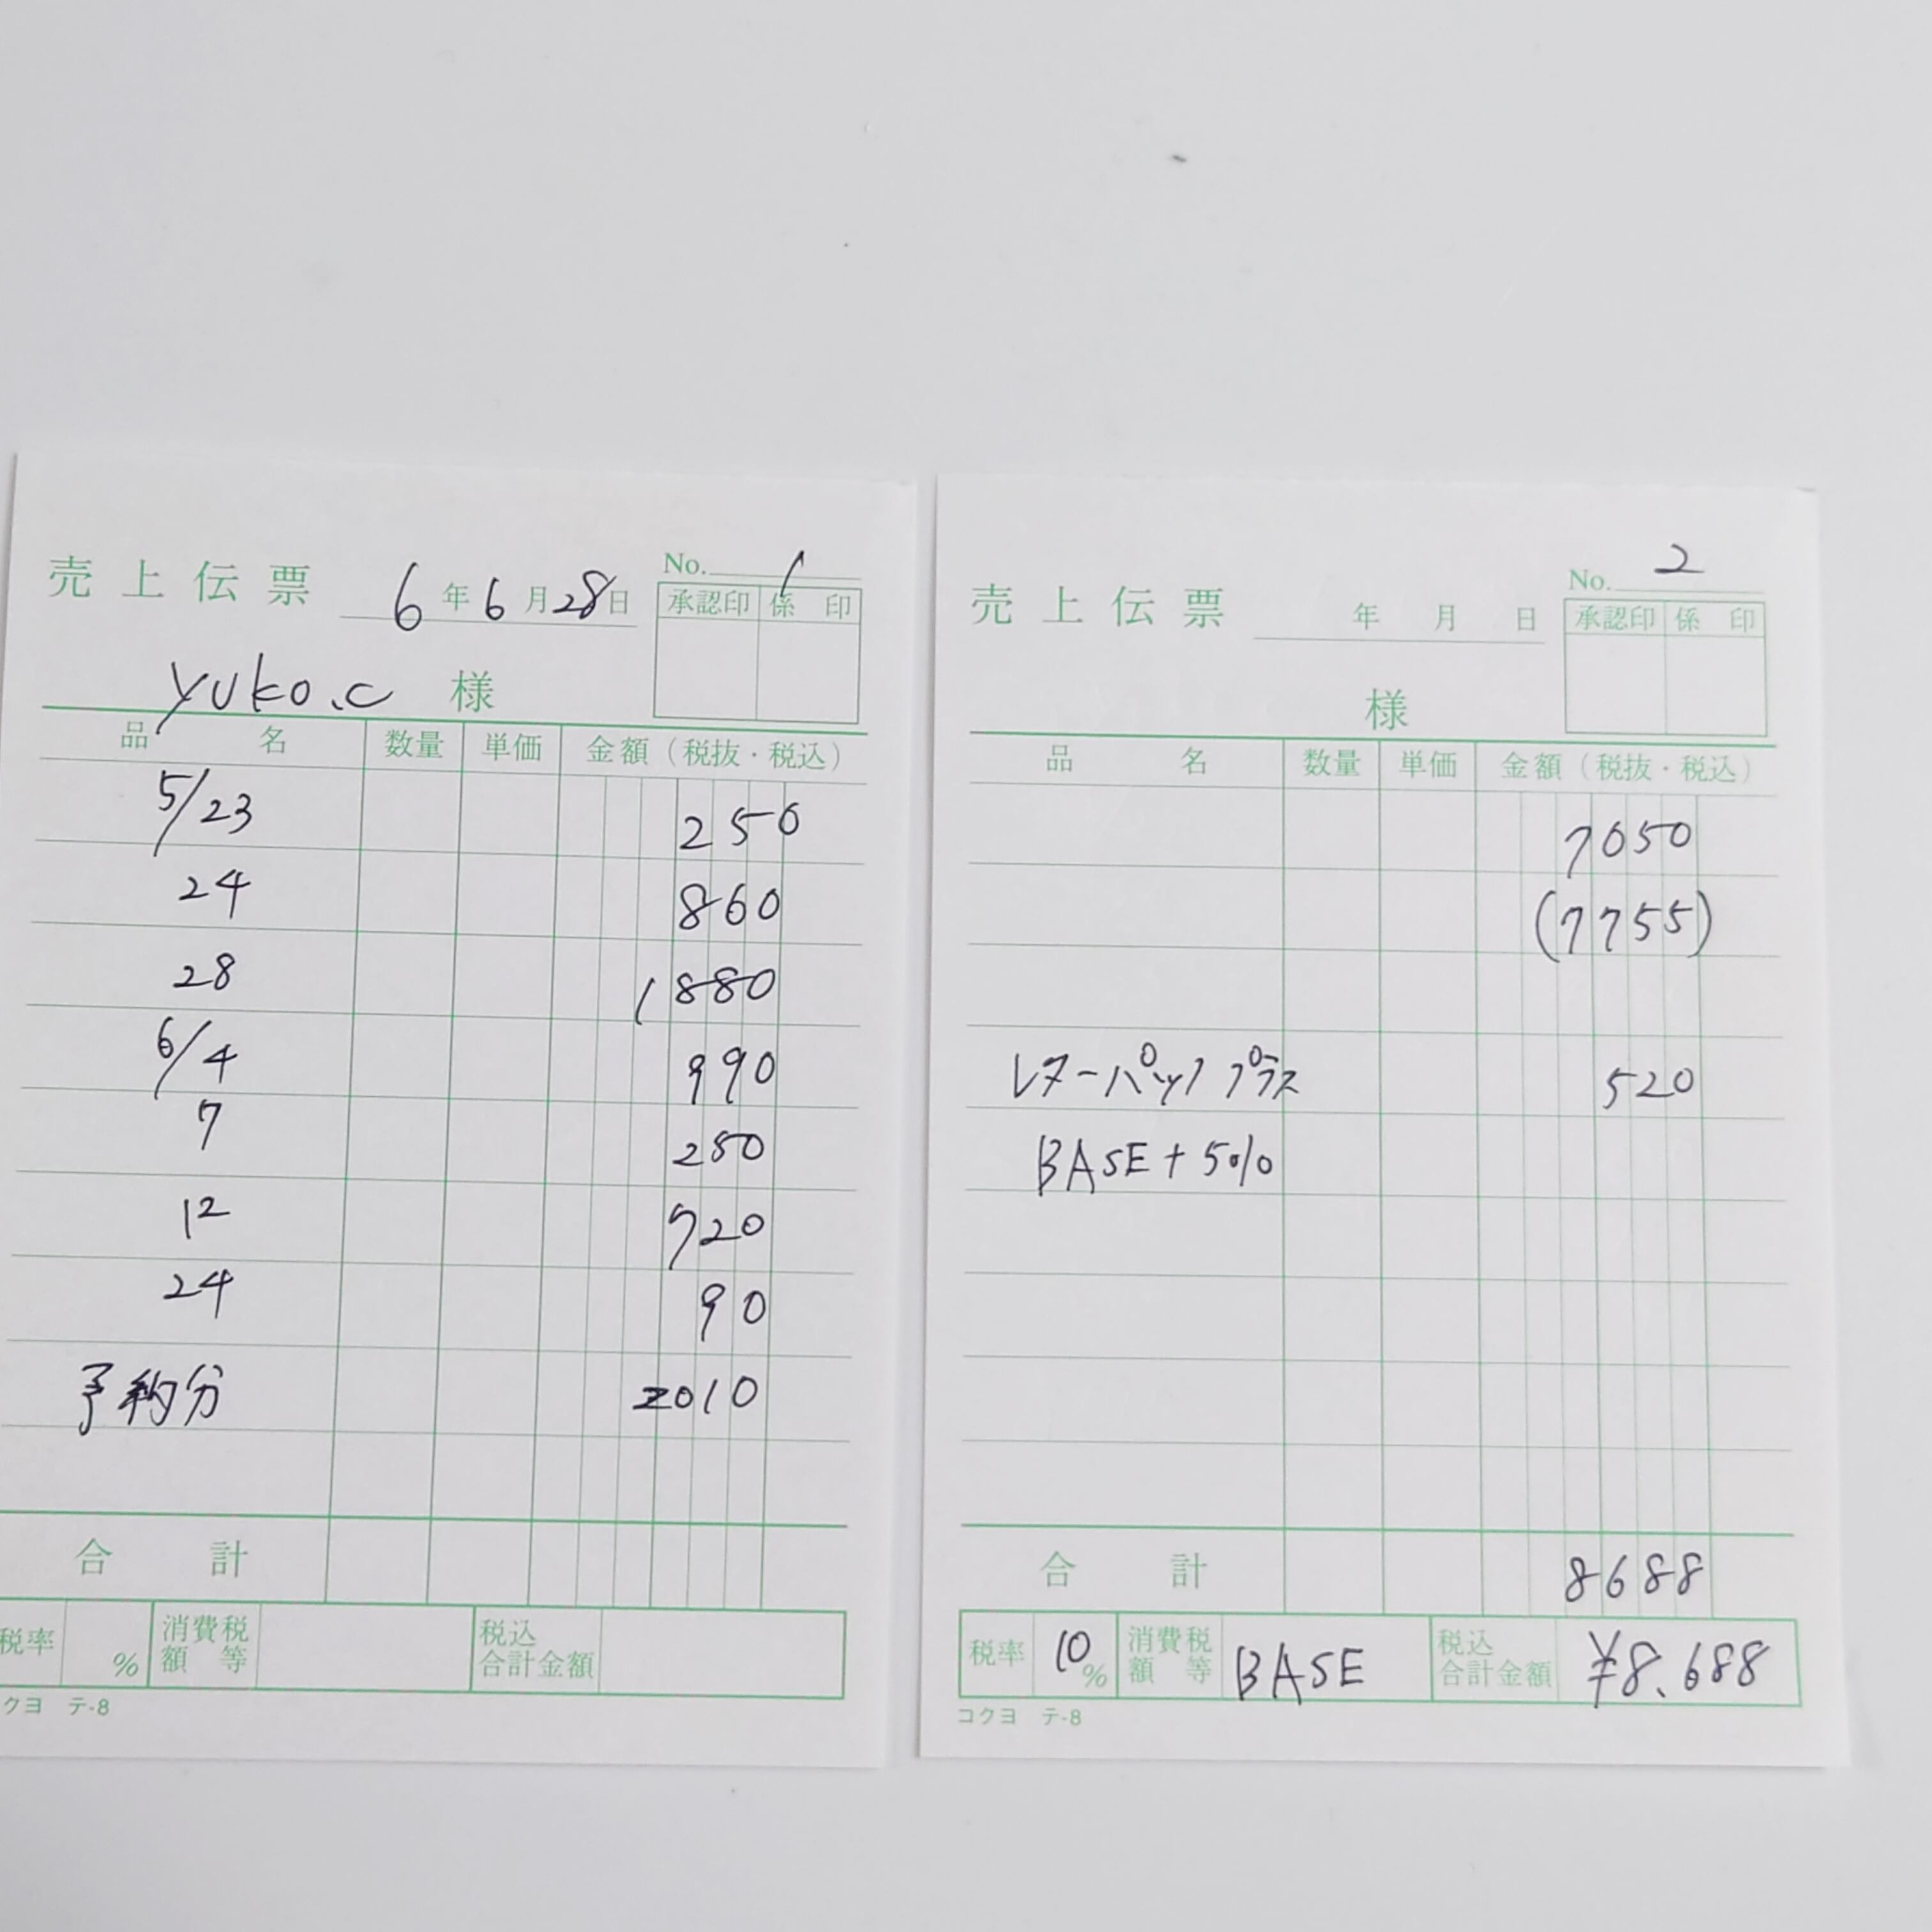 売上伝票 6年6月28日
No. 1
承認印 係印
yuko.c 様
品名 数量 単価 金額(税抜・税込)
5/23 250
24 860
28 1880
6/4 990
7 250
12 720
24 90
予約分 2010
合計
税率 % 消費税額等 税込合計金額
クヨ テ-8
売上伝票 年 月 日
No. 2
承認印 係印
様
品名 数量 単価 金額(税抜・税込)
7050
(7755)
レターパックプラス 520
BASE+5%
合計 8688
税率 10% 消費税額等 BASE 税込合計金額 ¥8.688
コクヨ テ-8